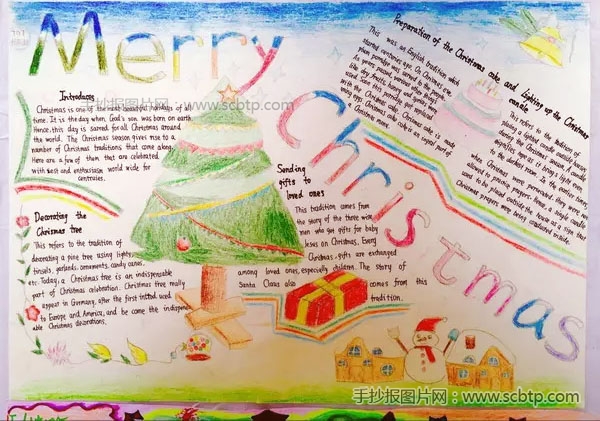 Merry
Christmas
Introduces
Christmas is one of the most beautiful holidays of all
time. It is the day when God's son was born on earth
Hence, this day is sacred for all Christmas around
the world. The Christmas season gives rise to a
number of Christmas traditions that come along.
Here are a few of them that are celebrated
with zest and enthusiasm world wide for
centuries.
Decorating the
Chrismas tree
This refers to the tradition of
decorating a pine tree using lights,
tinsels, garlands, ornaments, candy canes,
etc. Today, a Christmas tree is an indispensable
part of Christmas celebration. Christmas tree really
appear in Germany, after the first introd used
to Europe and America, and be come the indispens-
able Christmas decorations.
Sending
gifts to
loved ones
This tradition comes from
the story of the three wise
men who got gifts for baby
Jesus on Christmas. Every
Christmas, gifts are exchanged
among loved ones, especially children. The story of
Santa Claus also comes from this
tradition.
Preparation of the Christmas cake and lighting up the Christmas
candle
This was an English tradition which
started centuries ago. On Christmas eve,
plum porridge was served to the people.
As years passed,
like dry fruits, honey and spices
used
Christmas cake. Christmas cake is made
using eggs
Christmas cake is an
part of
a Christmas meal.
This refers to the tradition of
placing a lighted candle outside the house,
during the Christmas season. A candle
signifies hope as it brings light even
to the darkest room. In the earlier times,
when Christmas were persecuted, they were not
allowed to practice prayers. Hence, a single candle
used to be placed outside the house as a sign that
Christmas prayers were being conducted inside.
手抄报图片网：www.scbtp.com
手抄报图片网：www.scbtp.com